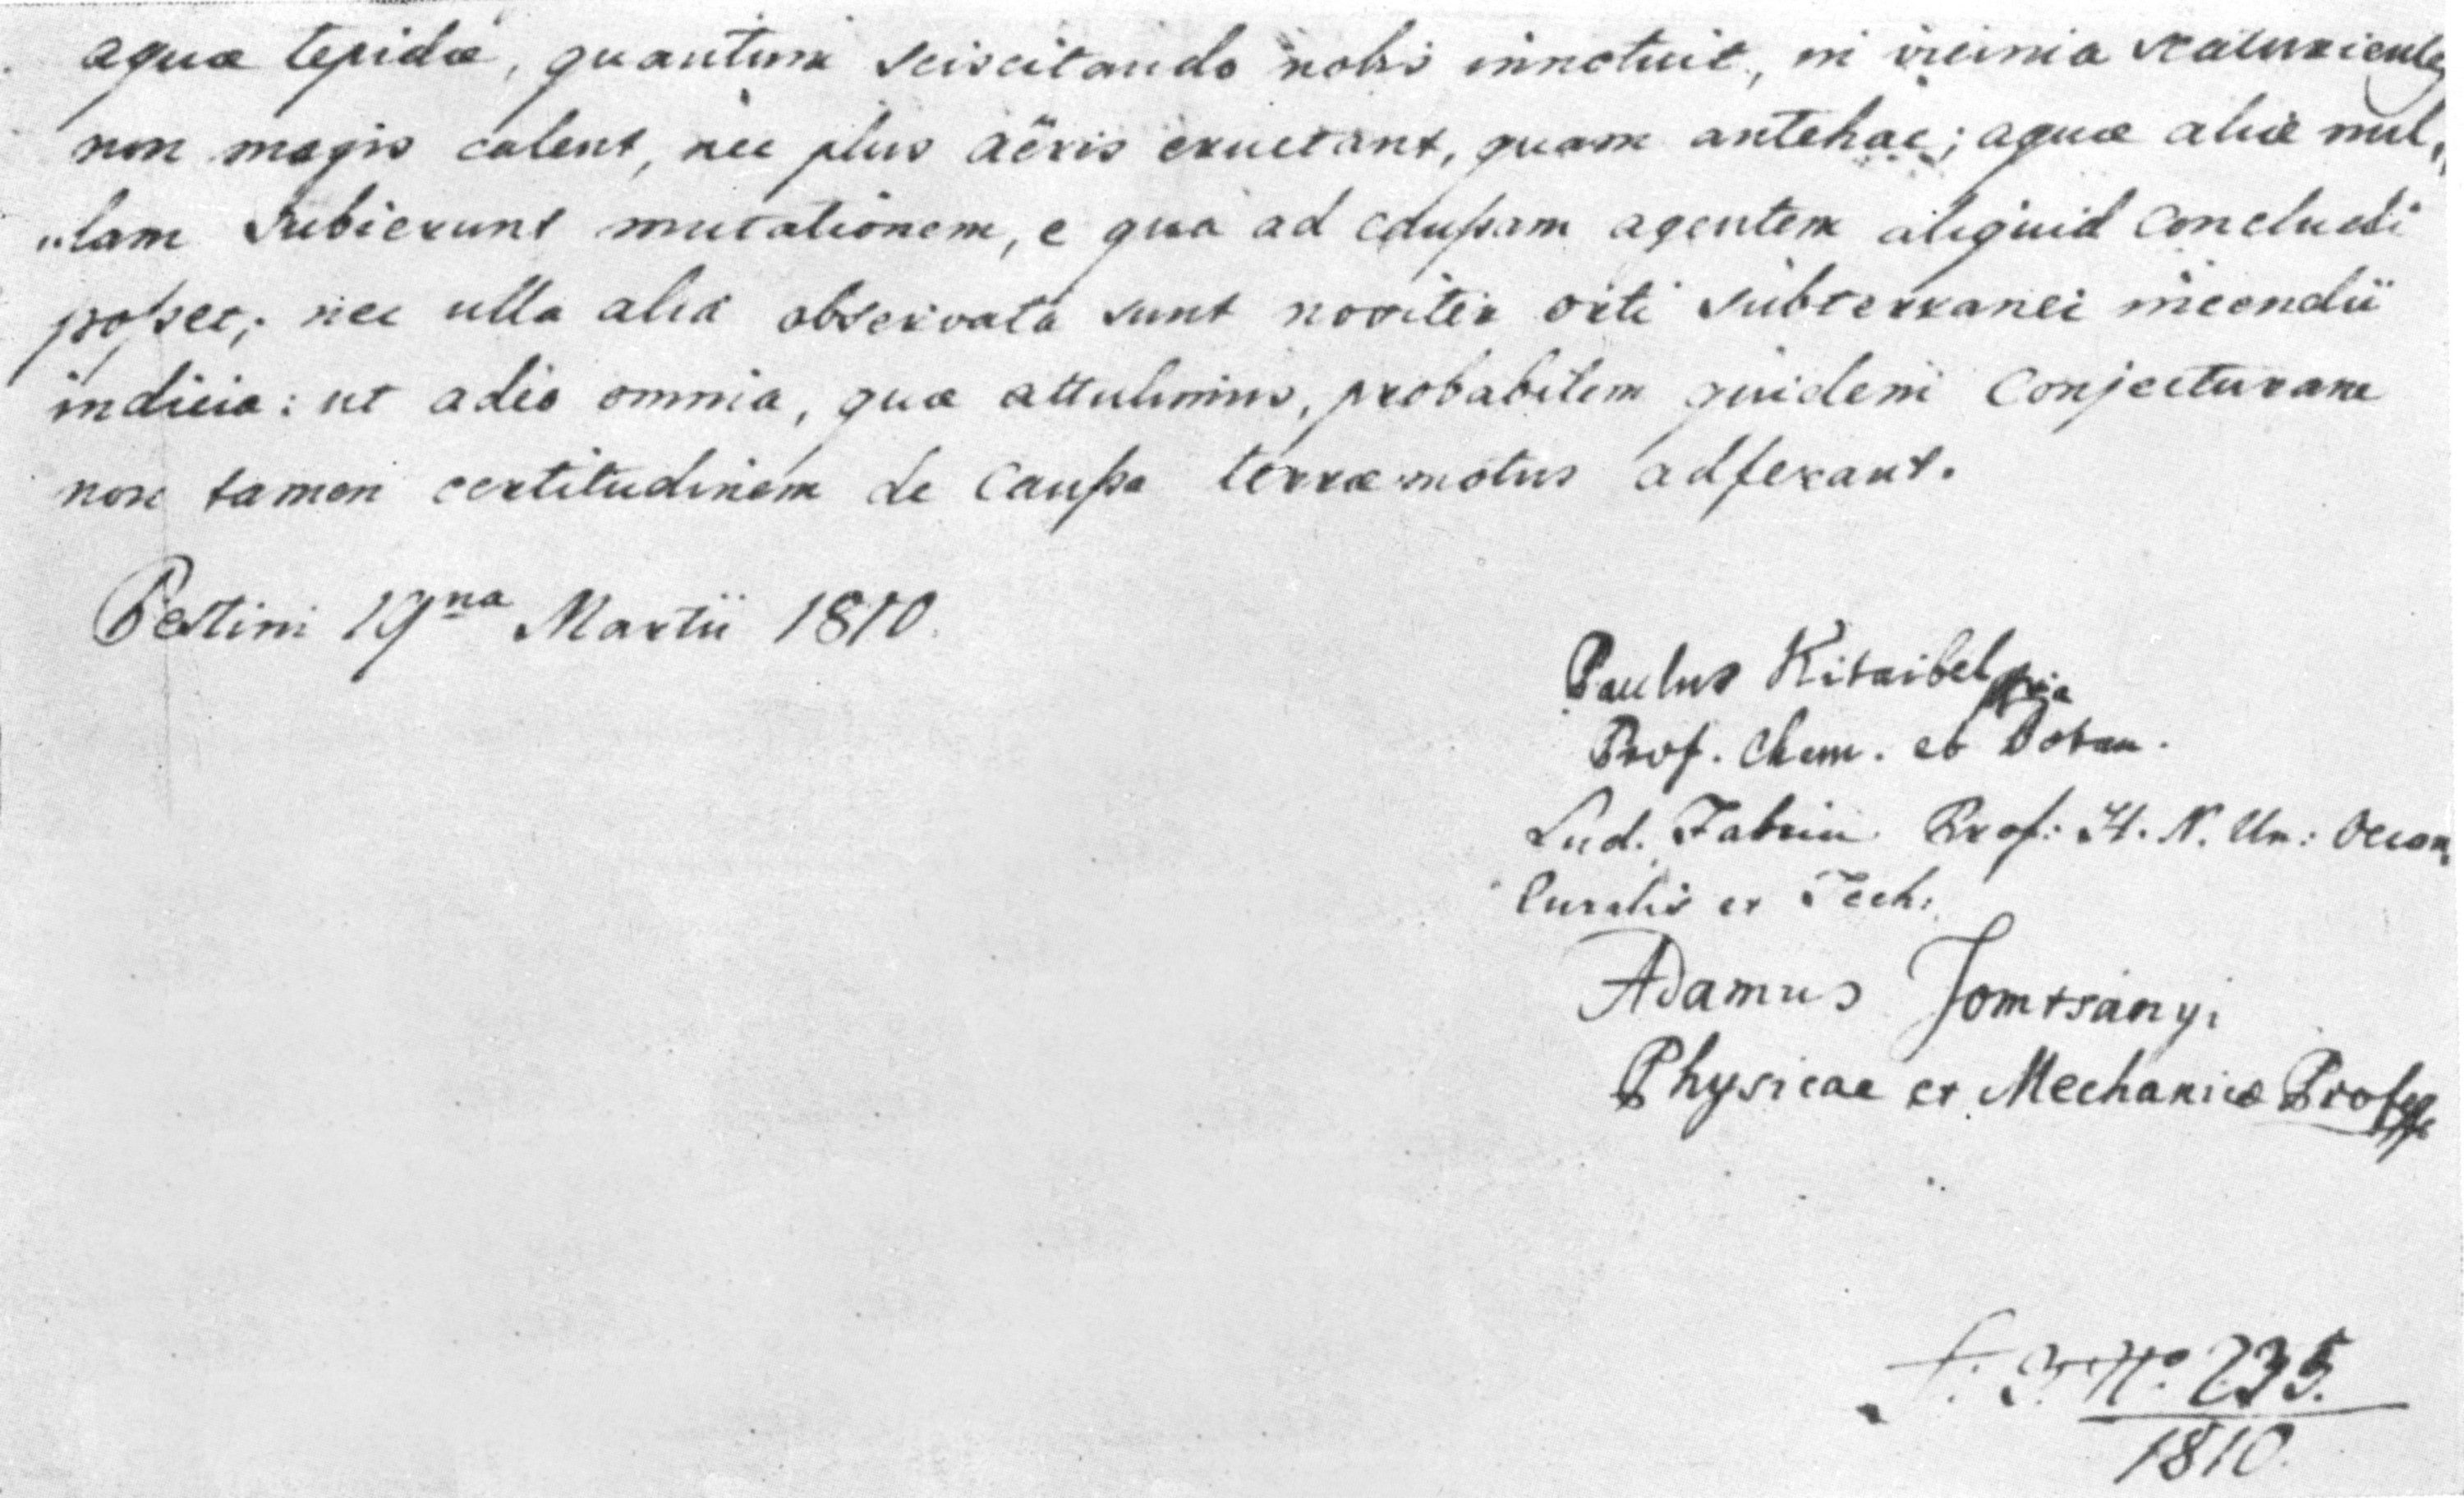 aquæ tepidæ, quantum sciscitando nobis innotuit, in vicinia scaturientes
non magis calent, nec plus aëris eructant, quam antehac; aquæ aliæ nul„
„lam subierunt mutationem, e qua ad caußam agentem aliquid concludi
poßet; nec ulla alia observata sunt noviter orti subterranei incendii
indicia: ut adeo omnia, quæ attulimus, probabilem quidem Conjecturam
non tamen certitudinem de Caußa terræmotus adferant.
Pestini 19na Martii 1810.
Paulus Kitaibel
Prof. Chem. et Botan.
Lud. Prof: H. N. Un: Oecon.
Ruralis et Tech:
Adamus Tomtsányi
Physicae et Mechanicæ
No. 235.
1810.